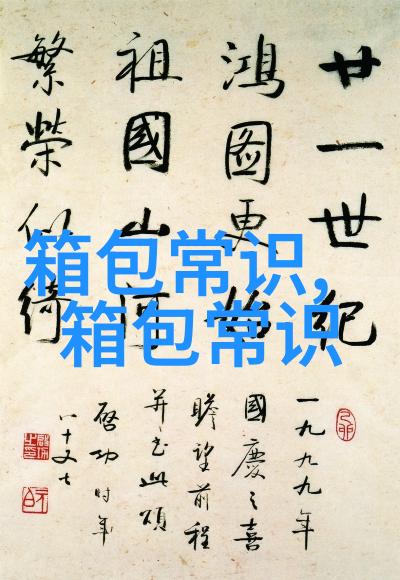 廿一世紀
鴻圖更始
祖國山河
繁榮似綺
一九九九年
國慶之喜
瞻望前程
并书此頌
啓功时年
八十又七
箱包常识,
箱包常识